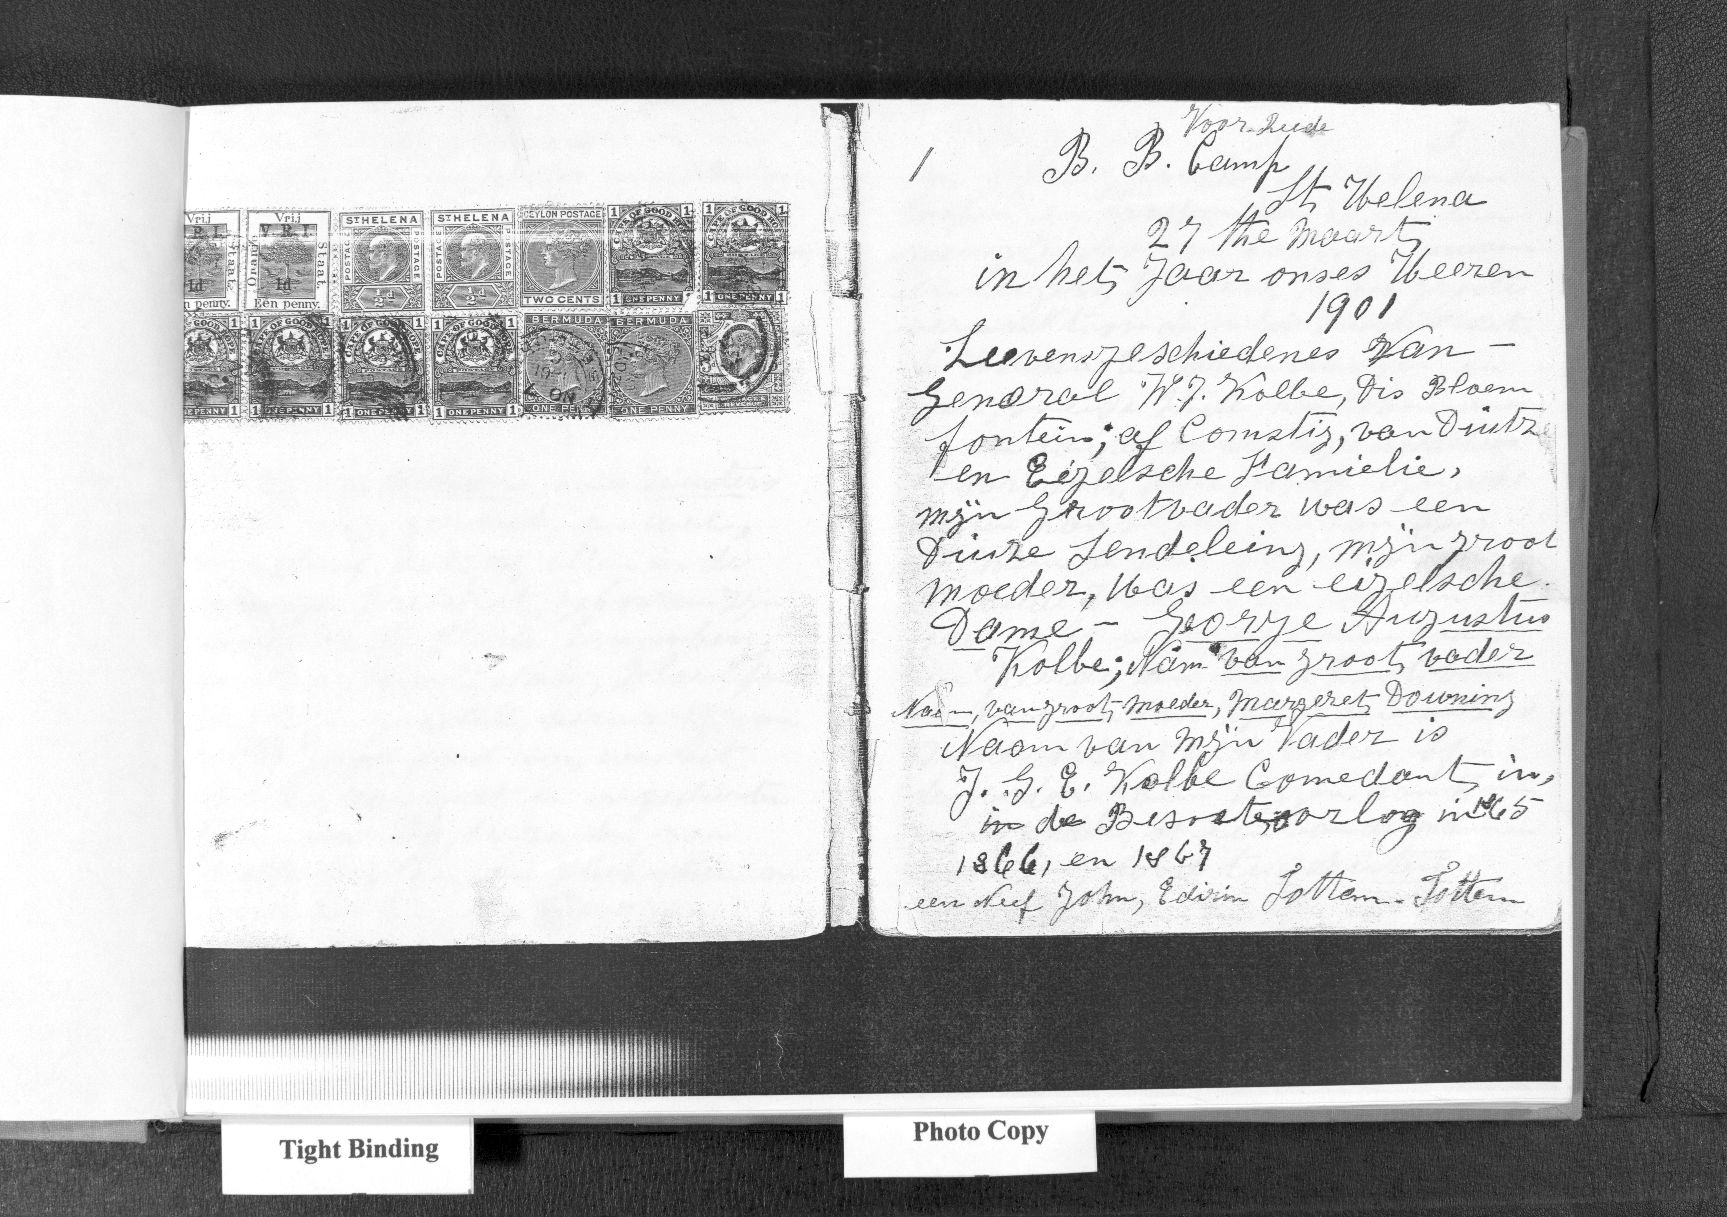 Vrij
V.R.I.
Staat.
1d
n penny.
Vrij
V.R.I.
Oranje
Staat.
1d
Eén penny.
ST HELENA
POSTAGE
POSTAGE
½d
ST HELENA
POSTAGE
POSTAGE
½d
CEYLON POSTAGE
TWO CENTS
1 CAPE OF GOOD HOPE 1
1 ONE PENNY 1
1 CAPE OF GOOD HOPE 1
1 ONE PENNY 1
OF GOOD 1
PENNY 1
1 CAPE OF GOOD 1
1 ONE PENNY 1
1 CAPE OF GOOD 1
1 ONE PENNY 1
1 CAPE OF GOOD 1
1 ONE PENNY 1
BERMUDA
ONE PENNY
BERMUDA
ONE PENNY
Voor-Reede
1
B. B. Camp
St Helena
27 the Maart
in het Jaar onses Heeren
1901
Leevensgeschiedenes Van -
General W. J. Kolbe, Dis Bloem
fontein; af Comstig, van Duitze
en Eigelsche Famielie,
mijn Grootvader was een
Duize Sendeleing, mijn groot
moeder, was een eigelsche.
Dame - George Augustus
Kolbe; Nam van groot vader
Naam, van groot moeder, Margeret Downing
Naam van mijn Vader is
J. G. E. Kolbe Comedant, in,
in de Besoetoorlog in 1865
1866, en 1867
een Neef John, Edirin Tottem - Tottem
Tight Binding
Photo Copy